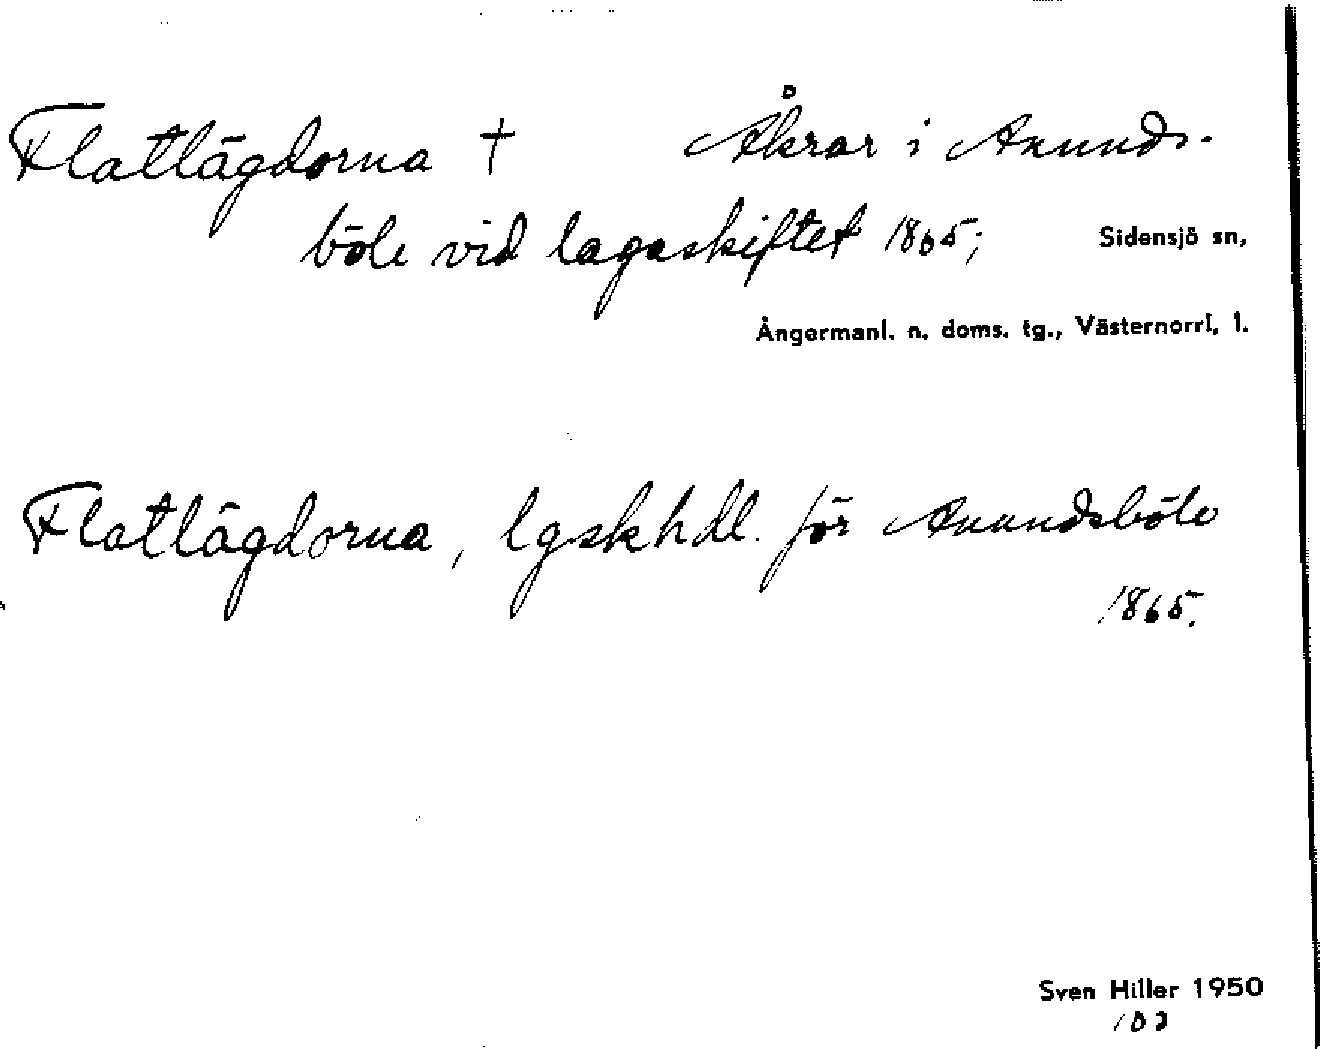 Flatlägdorna † Åkrar i Anunds-
böle vid lagaskiftet 1865; Sidensjö sn,
Ångermanl. n. doms. tg., Västernorrl. l.
Flatlägdorna, lgskhdl. för Anundsböle
1865.
Sven Hiller 1950